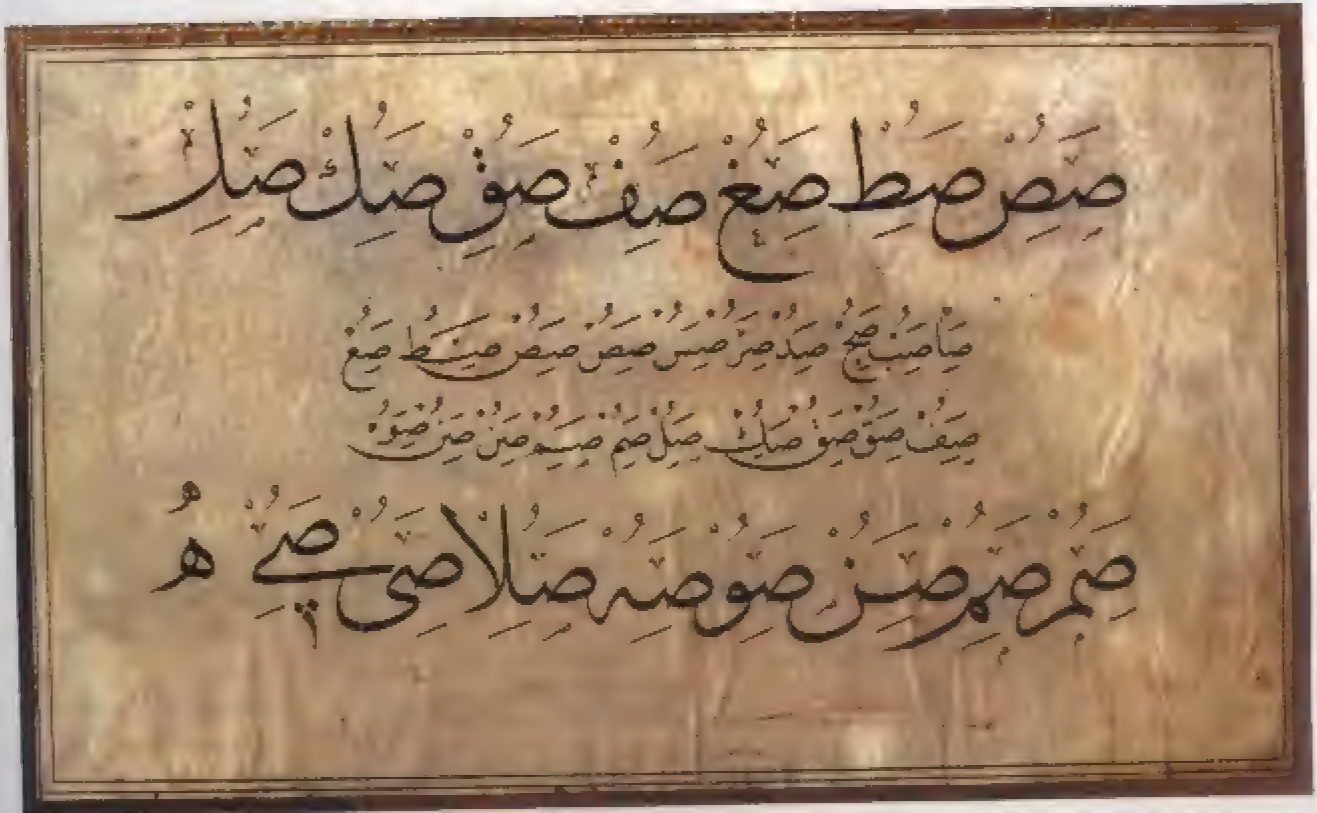 صص صط صع صف صق صك صل
صا صب صج صد صر صس صص صص صط صع
صف صق صق صك صل صم صن صن صو
صم صم صن صو صه صلا صى صے ه